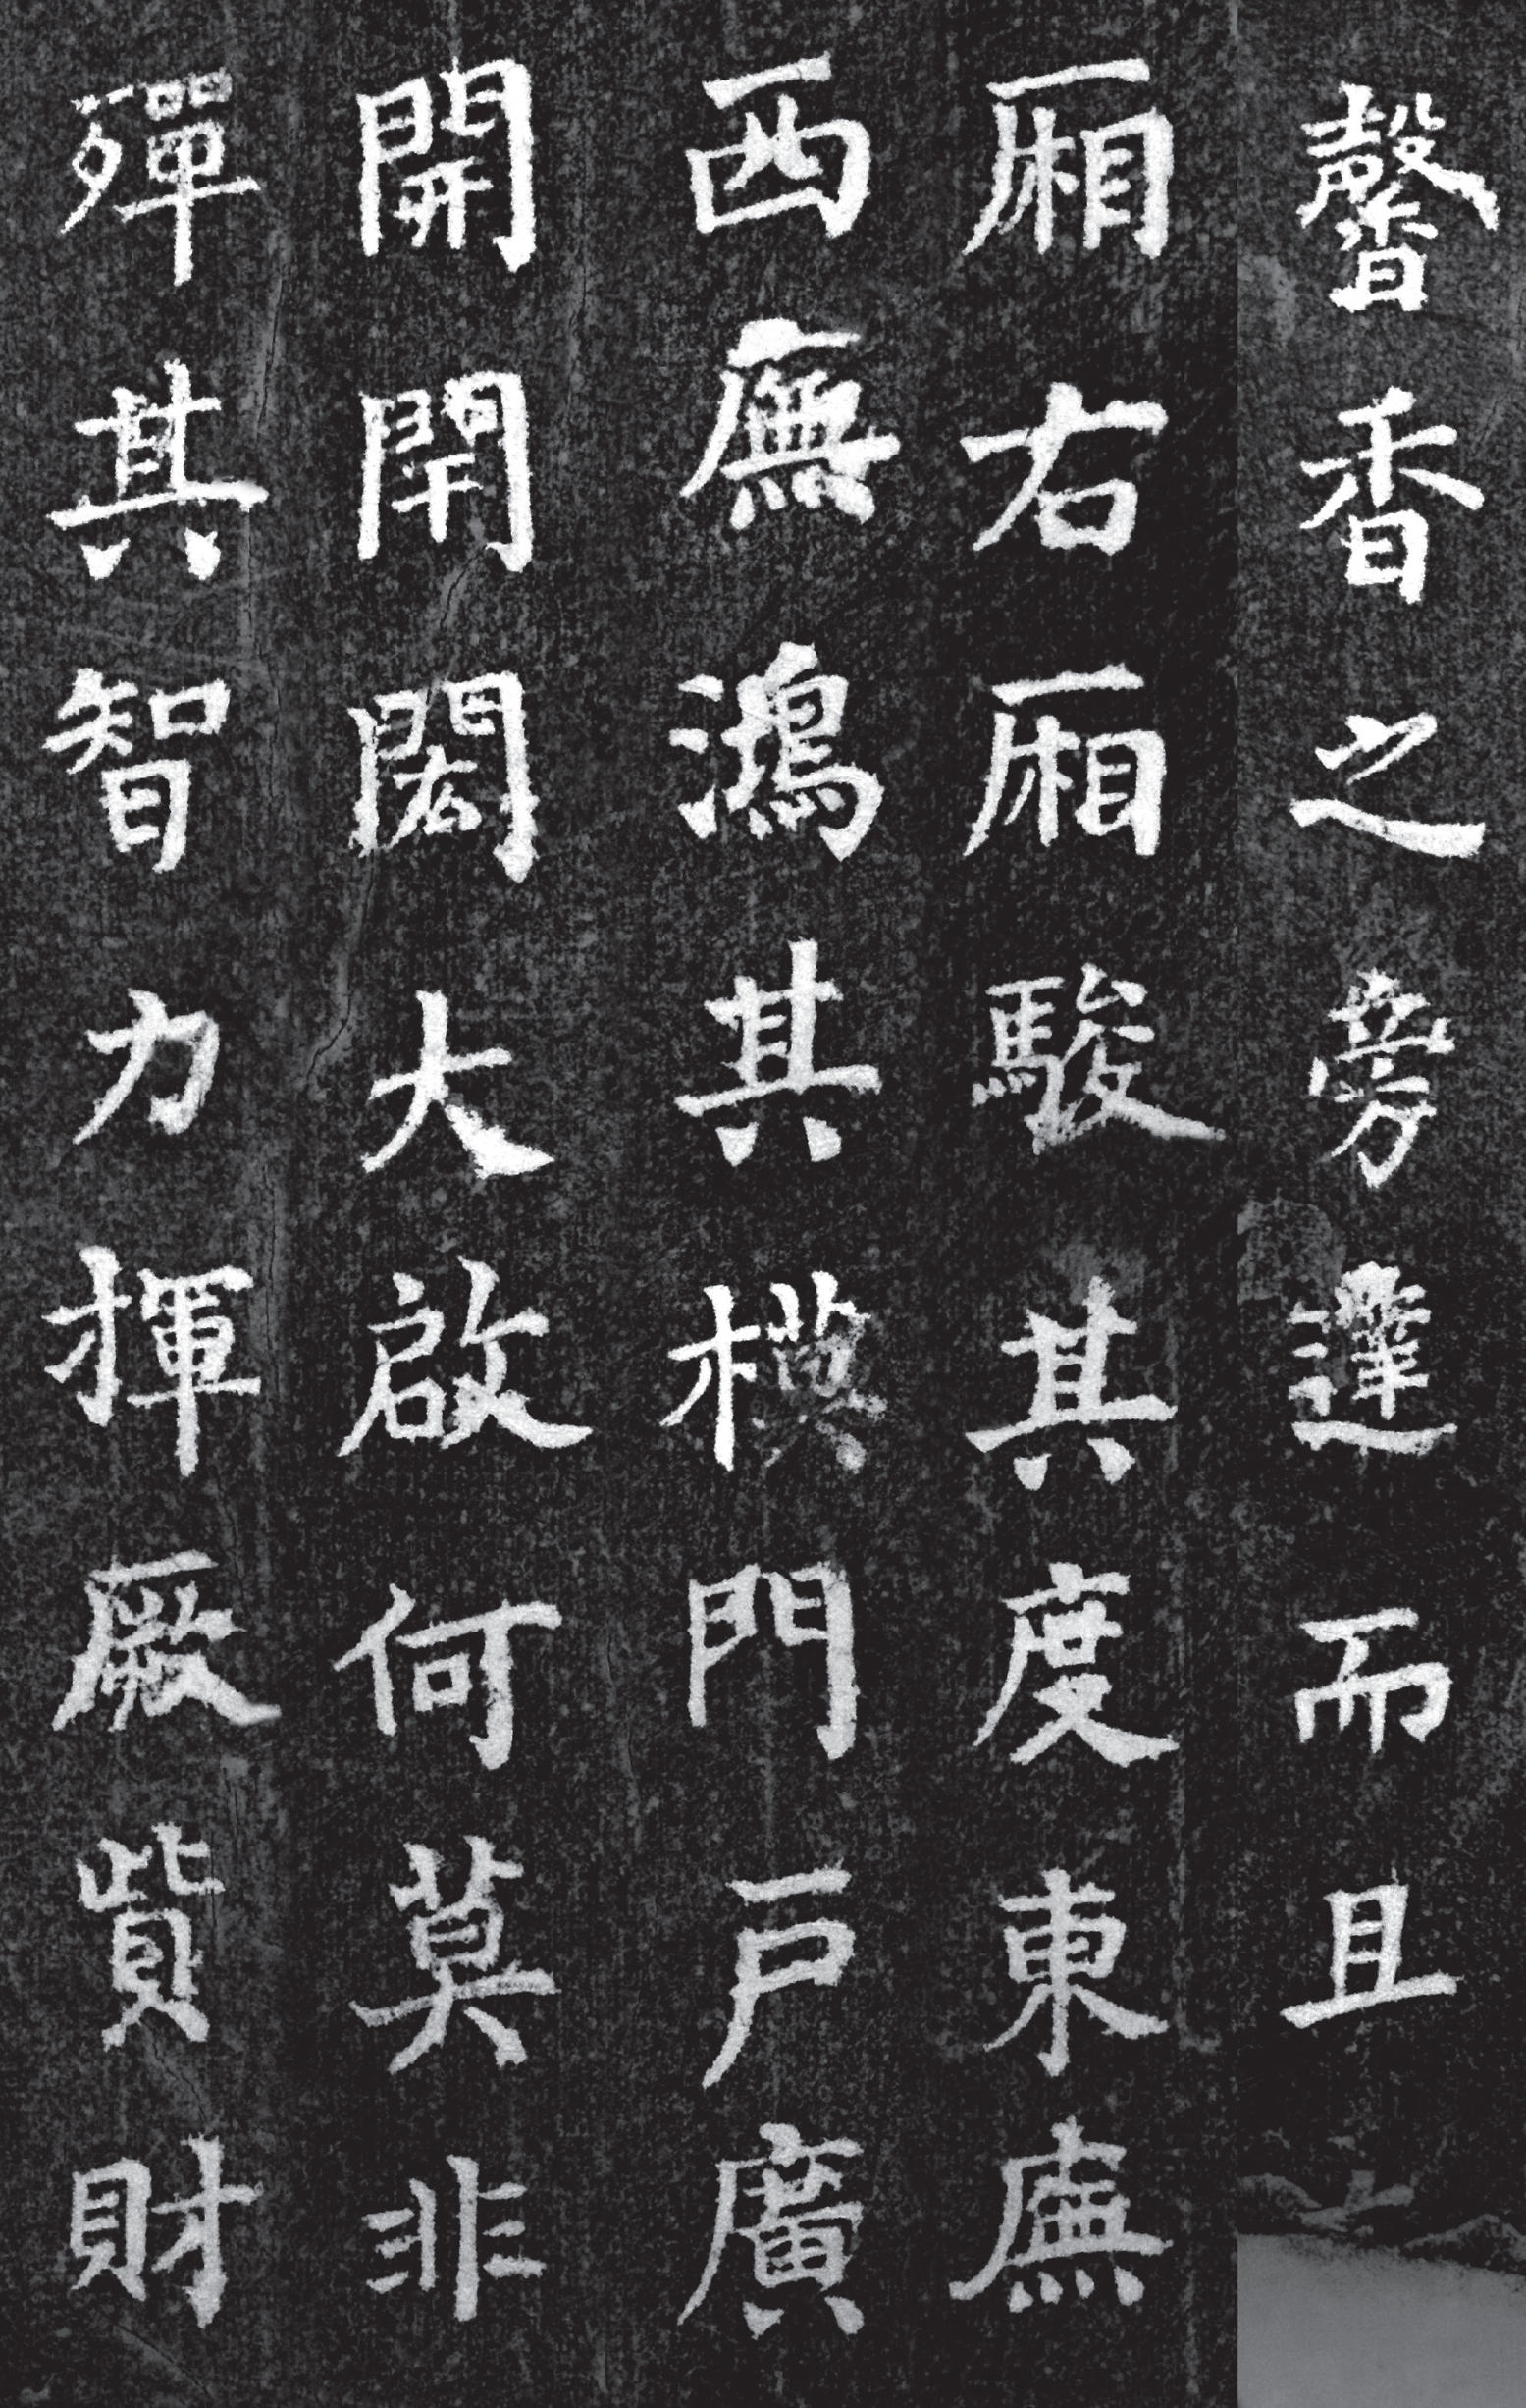 馨香之旁達而且
厢右厢駿其度東廡
西廡鴻其模門戶廣
開閈閎大啟何莫非
殫其智力揮厥貲財